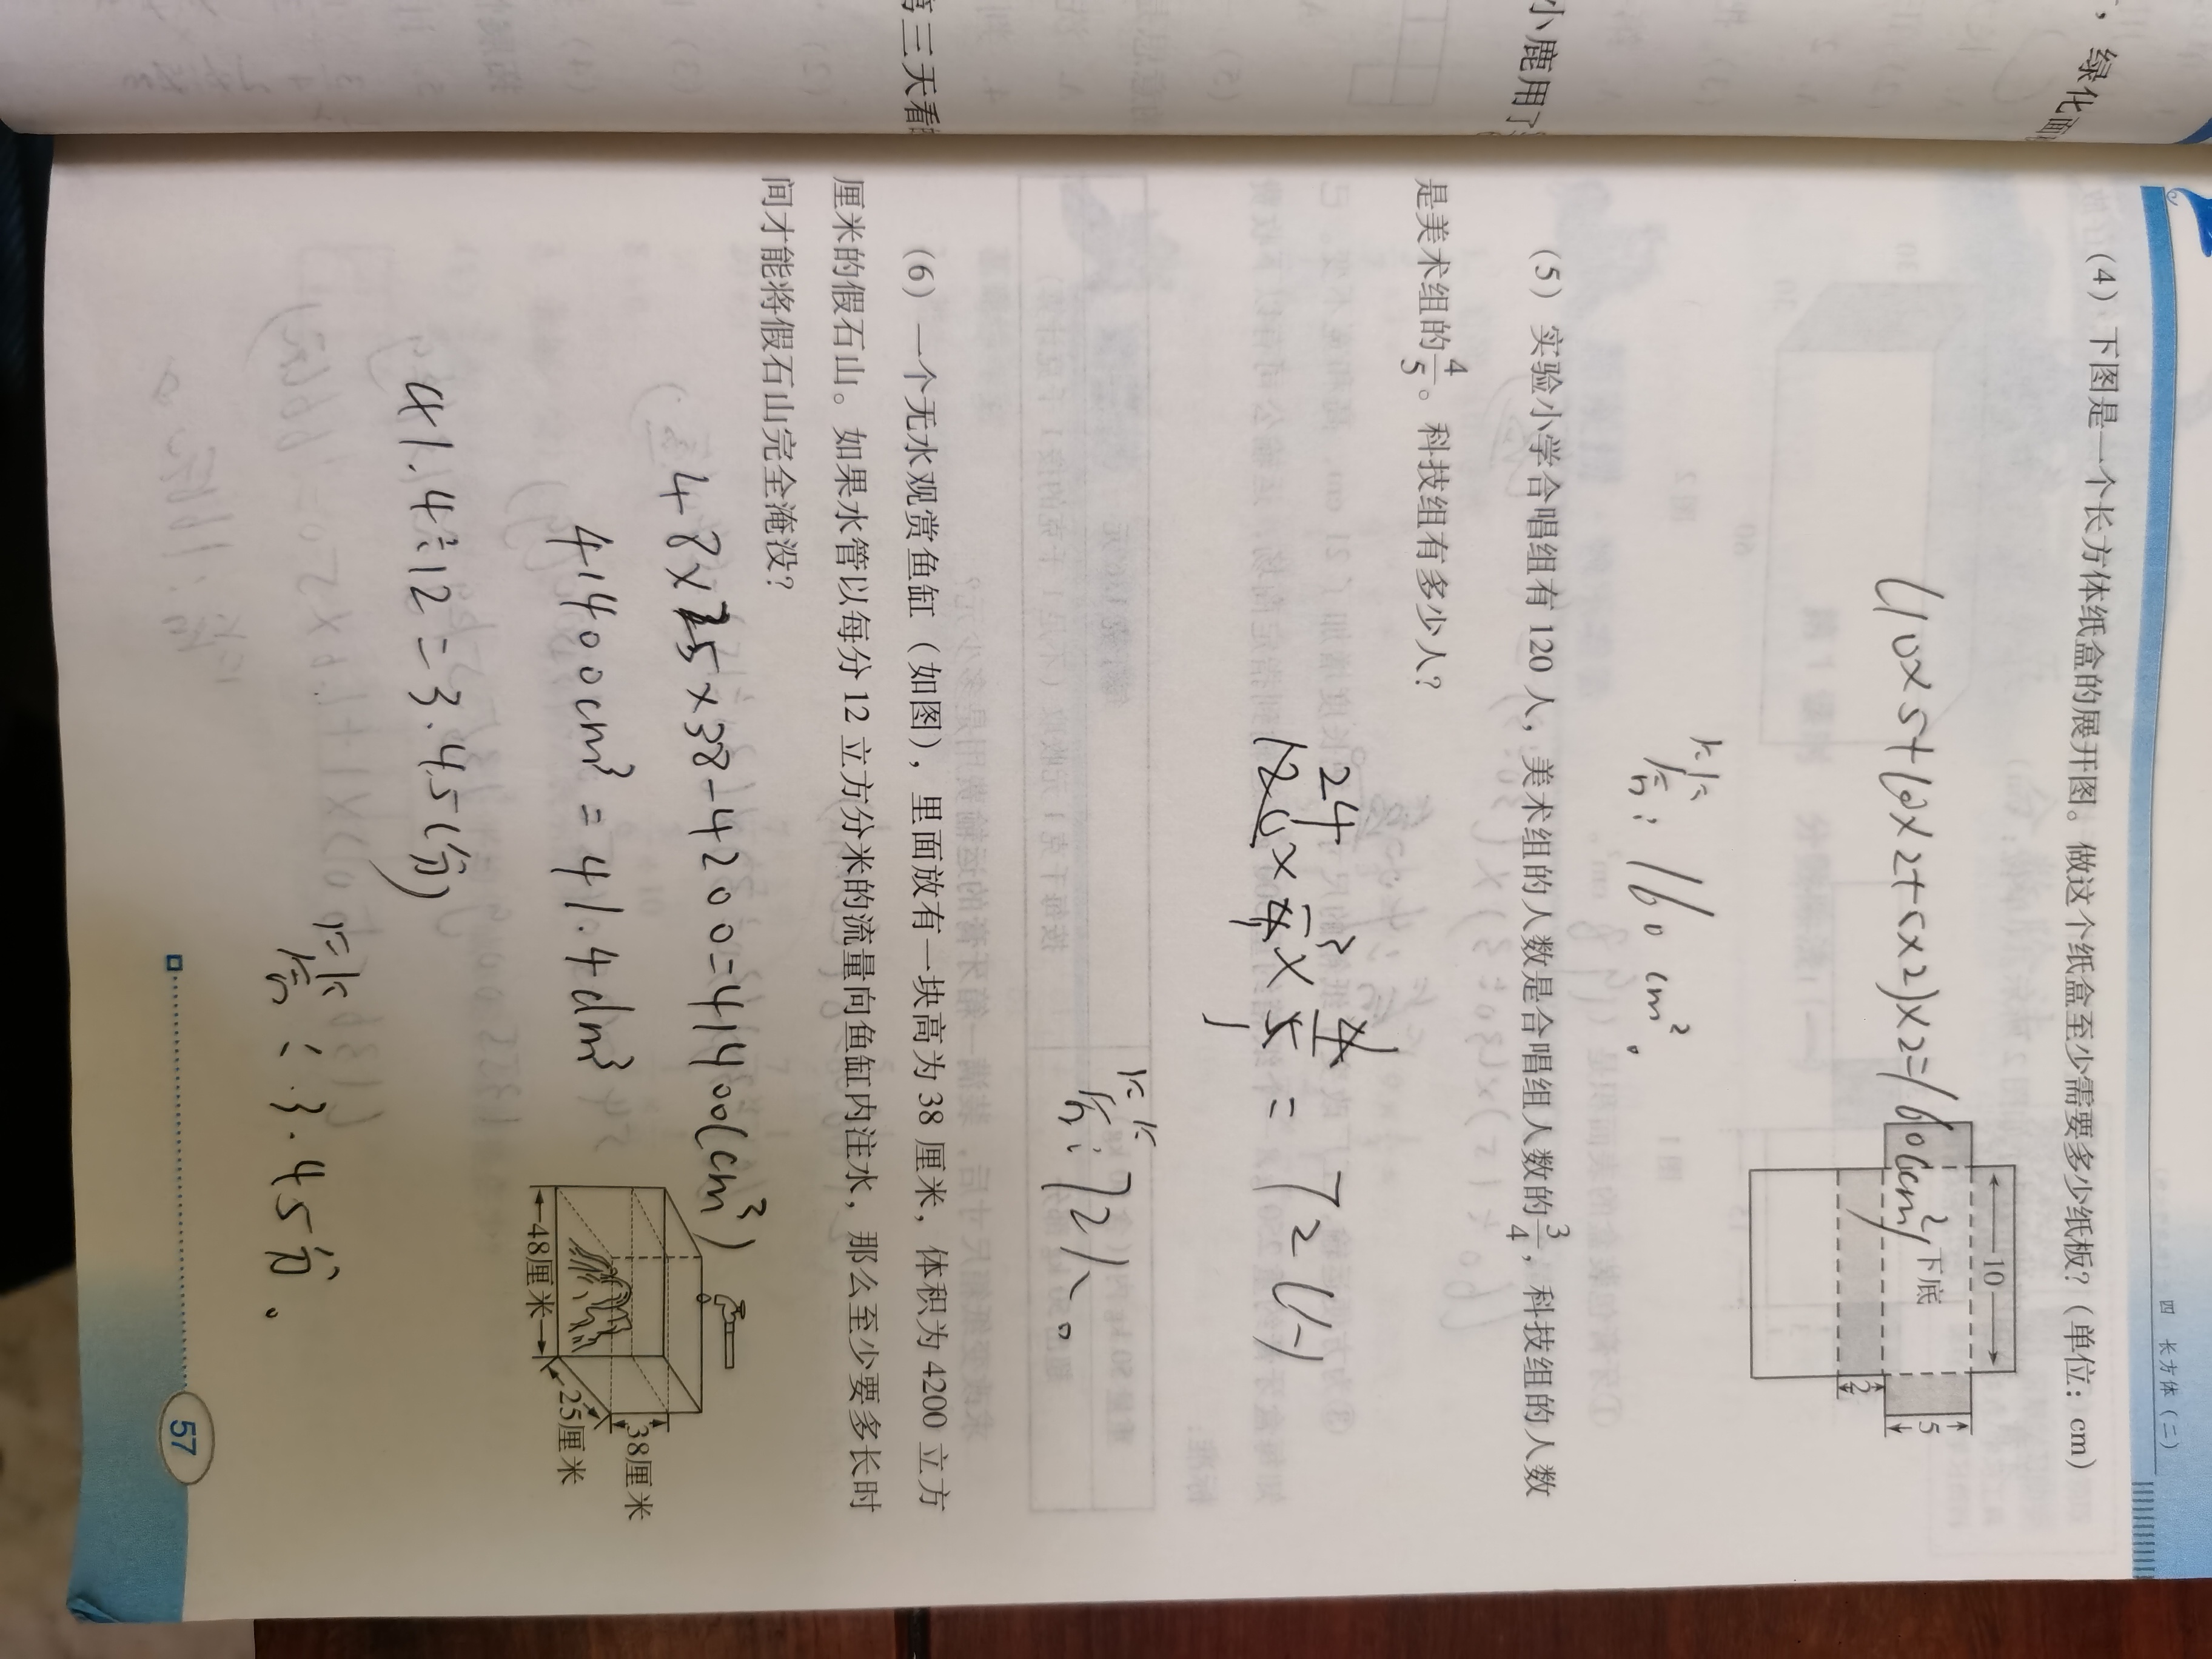 ，绿化面
小鹿用了
三天看
四 长方体（二）
（4）下图是一个长方体纸盒的展开图。做这个纸盒至少需要多少纸板？（单位：cm）
10
下底
5
2
(10×5+10×2+5×2)×2=160(cm²)
答：160cm²。
（5）实验小学合唱组有 120 人，美术组的人数是合唱组人数的3/4，科技组的人数
是美术组的4/5。科技组有多少人？
24
120×3/4×4/5=72(人)
1
答：72人。
（6）一个无水观赏鱼缸（如图），里面放有一块高为 38 厘米，体积为 4200 立方
厘米的假石山。如果水管以每分 12 立方分米的流量向鱼缸内注水，那么至少要多长时
间才能将假石山完全淹没？
48×25×38-4200=41400(cm³)
41400cm³=41.4dm³
41.4÷12=3.45(分)
答：3.45分。
38厘米
48厘米
25厘米
57